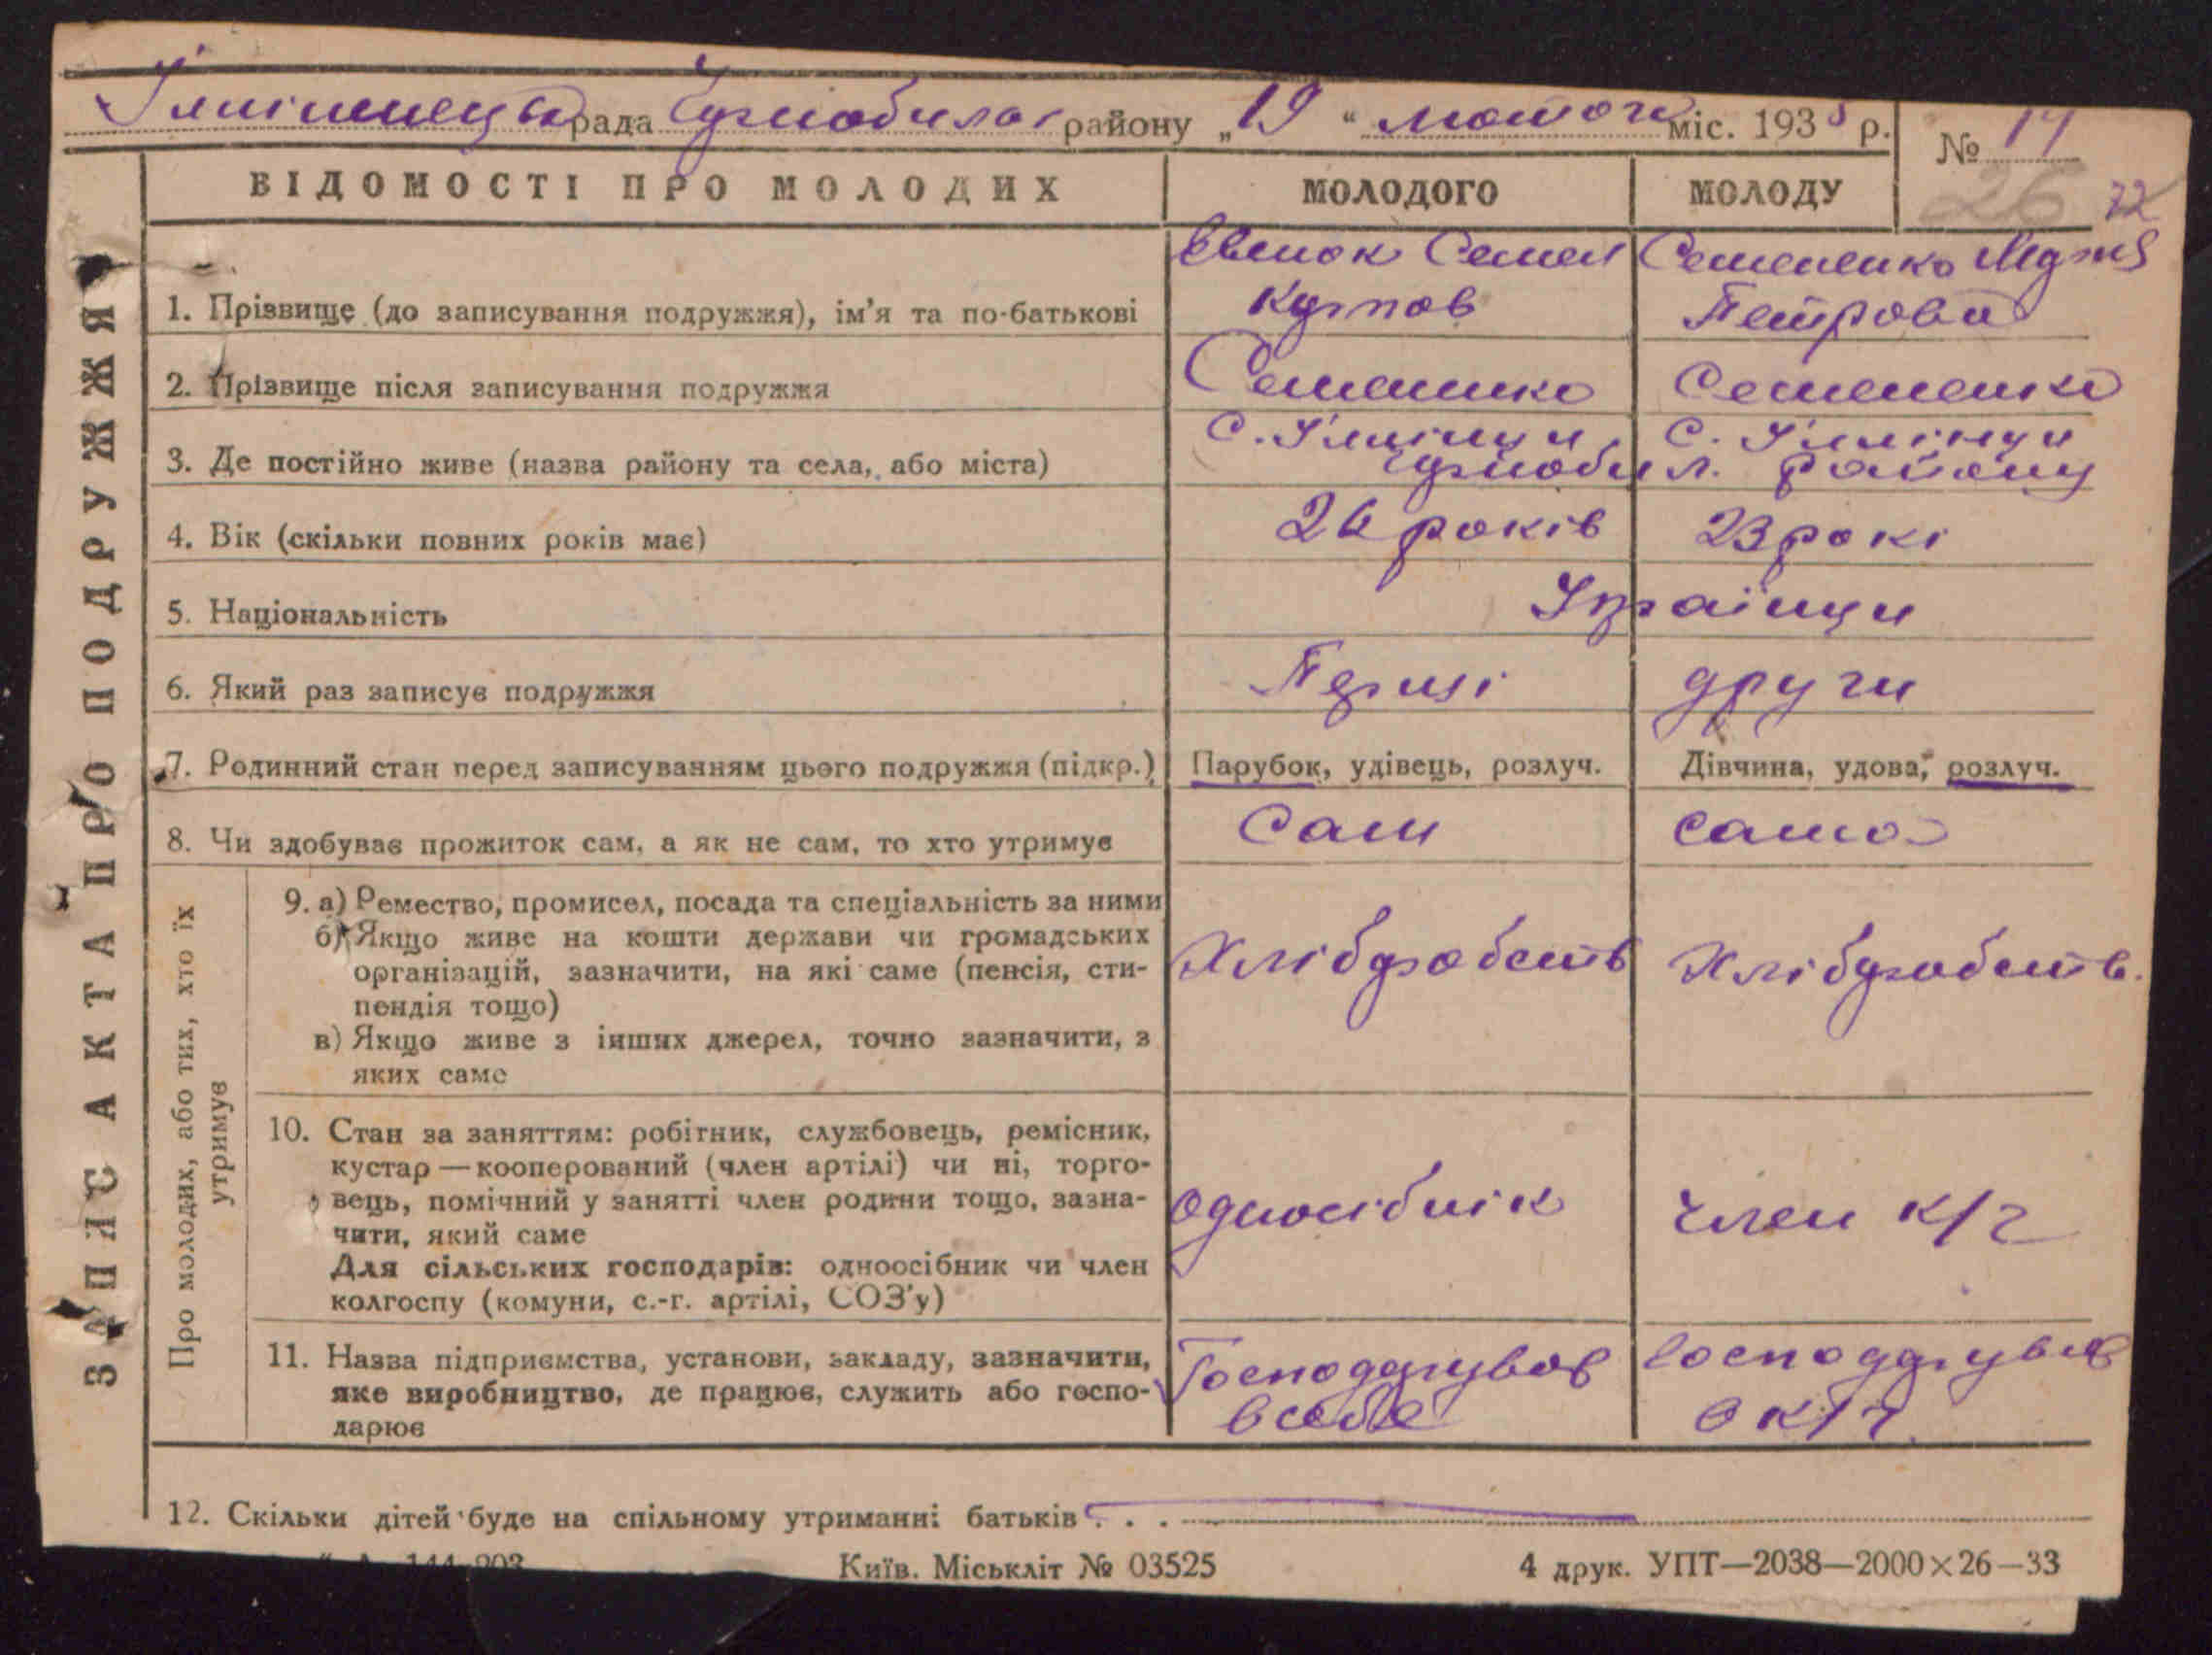 Іллінецька рада Чорнобильськ району „19“ лютого міс. 193 р.
№
26 72
ЗАПИС АКТА ПРО ПОДРУЖЖЯ
ВІДОМОСТІ ПРО МОЛОДИХ МОЛОДОГО МОЛОДУ
1. Прізвище (до записування подружжя), ім'я та по-батькові Семен Семененко
Петрова
2. Прізвище після записування подружжя Семененко Семененко
3. Де постійно живе (назва району та села, або міста) с. Іллінци с. Іллінци
Чорнобил. району
4. Вік (скільки повних років має) 26 років 23 рокі
5. Національність Українци
6. Який раз записує подружжя Перші други
7. Родинний стан перед записуванням цього подружжя (підкр.) Парубок, удівець, розлуч. Дівчина, удова, розлуч.
8. Чи здобуває прожиток сам, а як не сам, то хто утримує Сам сама
Про молодих, або тих, хто їх
утримує
9. а) Ремество, промисел, посада та спеціальність за ними
б) Якщо живе на кошти держави чи громадських
організацій, зазначити, на які саме (пенсія, сти-
пендія тощо)
в) Якщо живе з інших джерел, точно зазначити, з
яких саме
Хліборобств Хліборобств.
10. Стан за заняттям: робітник, службовець, ремісник,
кустар — кооперований (член артілі) чи ні, торго-
вець, помічний у занятті член родини тощо, зазна-
чити, який саме
Для сільських господарів: одноосібник чи член
колгоспу (комуни, с.-г. артілі, СОЗ'у)
Одноосібнік член к/г
11. Назва підприємства, установи, закладу, зазначити,
яке виробництво, де працює, служить або госпо-
дарює
Господарував господарував
в себе в к/г
12. Скільки дітей буде на спільному утриманні батьків . . .
Київ. Міськліт № 03525 4 друк. УПТ—2038—2000×26—33